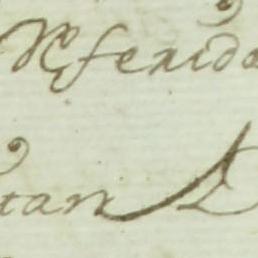 Referido
tan